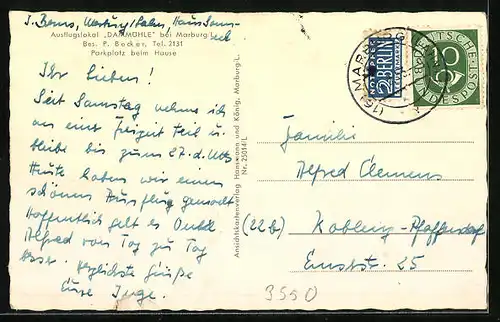 Ausflugslokal "DAMMÜHLE" bei Marburg
Bes. P. Becker, Tel. 2131
Parkplatz beim Hause
Ihr Lieben!
Seit Samstag nehme ich
an einer Freizeit teil u.
bleibe bis zum 27. d. Mts.
Heute haben wir einen
schönen Ausflug gemacht.
Hoffentlich geht es Onkel
Alfred von Tag zu Tag
besser. Herzlichste Grüße
Eure Inge.
Ansichtskartenverlag Hansmann und König, Marburg/L.
Nr. 25014/L
NOTOPFER
2 BERLIN
STEUERMARKE
DEUTSCHE
BUNDESPOST
10
(16) MARBURG
Familie
Alfred Clemens
(22b) Koblenz-Pfaffendorf
Emsstr. 25
3550